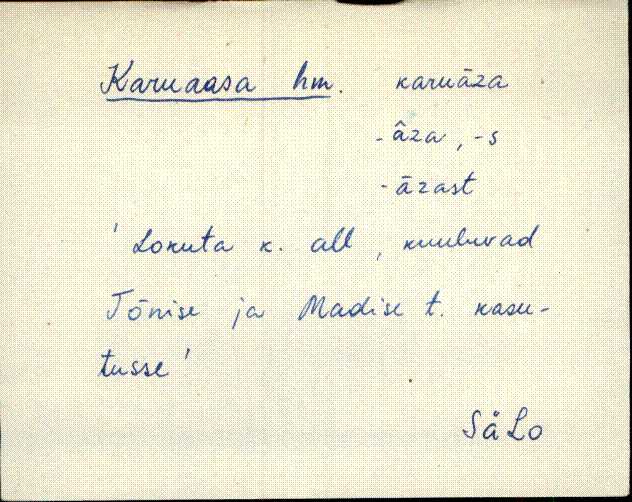 Karuaasa hm. karuāza
-âza, -s
-āzast
'Lokuta k. all, kuuluvad
Tõnise ja Madise t. kasu-
tusse'
SäLo